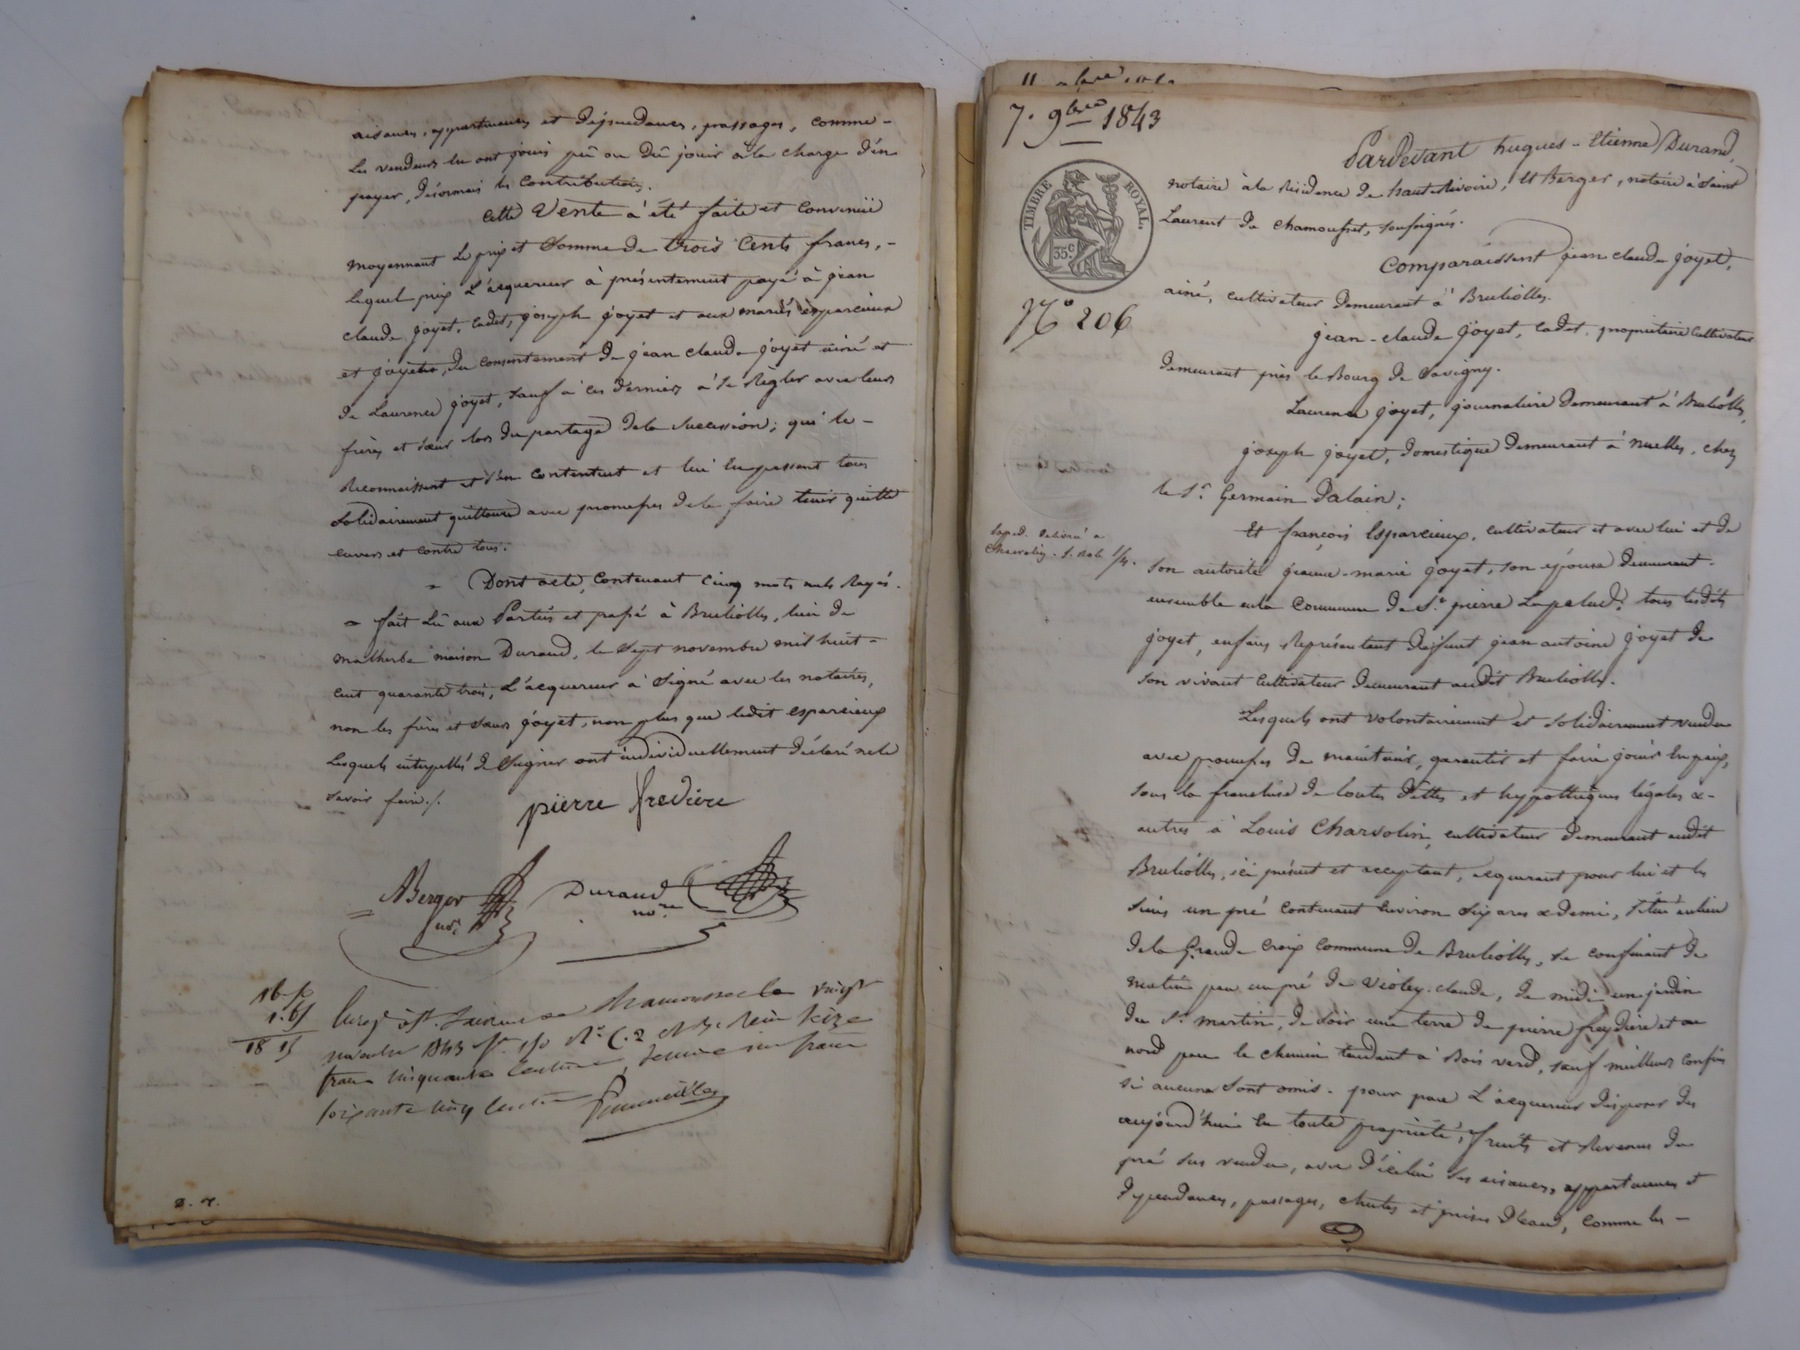 aisances, appartenances et dépendances, passages, comme -
les vendeurs en ont joui pû ou dû jouir à la charge d'en
payer, désormais les contributions.
Cette Vente a été faite et convenüe
moyennant le prix et Somme de trois Cents francs, -
lequel prix L'acquereur à présentement payé à jean
claude joyet, cadet, joseph joyet et aux mariés esparcieux
et joyet, du consentement de jean claude joyet ainé et
de Laurence joyet, sauf à ces derniers à se Régler avec leurs
frères et sœur lors du partage de la Succession; qui le -
Reconnaissent et s'en contentent et lui en passent tous
Solidairement quittance avec promesses de le faire tenir quitte
envers et contre tous.
= Dont acte, Contenant cinq mots nuls Rayés.
= fait Lû aux Parties et passé à Brulioles, lieu de
malherbe maison Durand, le Sept novembre mil huit -
cent quarante trois, L'acquereur à Signé avec les notaires,
non les frères et sœurs joyet, non plus que ledit esparcieux
Lesquels interpellés de Signer ont individuellement déclaré ne le
Savoir faire./.
pierre fredière
ABerger
Durand
nore
16 50
1.65
18 15
Enregé à St. Laurent de Chamousset le vingt
novembre 1843 fo. 110 Ro C. 2 et 3. Reçu Seize
francs cinquante centimes, Decime un franc
soixante cinq centimes
2. r.
7. 9bre 1843
Pardevant hugues - Etienne Durand,
TIMBRE ROYAL.
35c
notaire à la Résidence de hauteRivoire, et Berger, notaire à Saint
Laurent de Chamousset, soussignés.
Comparaissent jean claude joyet,
ainé, cultivateur demeurant à Brulioles.
No 206
jean-claude joyet, cadet, propriétaire cultivateur
demeurant près le Bourg de Savigny.
Laurence joyet, journalière demeurant à Brulioles,
joseph joyet, domestique demeurant à nuelles, chez
le Sr. Germain Dalain;
Exped. délivré à
Charvolin
Et françois Esparcieux, cultivateur et avec lui et de
son autorité jeanne-marie joyet, son épouse demeurant
ensemble en la Commune de St. pierre Lapalud; tous lesdits
joyet, enfans Représentant Défunt jean antoine joyet de
son vivant cultivateur demeurant audit Brulioles.
Lesquels ont volontairement et solidairement vendu
avec promesses de maintenir, garantir et faire jouir en paix,
sous la franchise de toutes Dettes et hypothèques légales &
autres à Louis Charvolin, cultivateur demeurant audit
Brulioles, ici présent et acceptant, acquerant pour lui et les
siens un pré contenant environ six ares & demi, situé au lieu
de la Grande Croix commune de Brulioles, se confinant de
matin par un pré de Violey claude, de midi un jardin
du Sr. martin, de soir une terre de pierre freydière et au
nord par le chemin tendant à Bois verd, sauf meilleurs confins
si aucuns sont omis. pour par L'acquereur disposer dès
aujourd'hui en toute propriété, fruits et Revenus du
pré sus vendu, avec d'icelui ses aisances, appartenances et
dépendances, passages, chutes et prises d'eau, comme les -